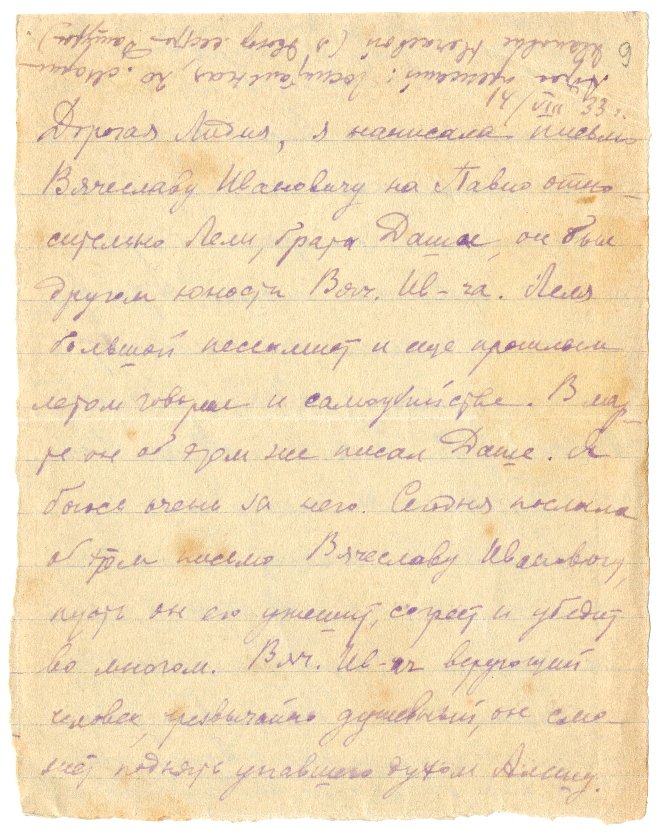 9
14/VIII 33 г.
Дорогая Лидия, я написала письмо
Вячеславу Ивановичу на Павло отно-
сительно Лели, брата Даши, он был
другом юности Вяч. Ив-ча. Леля
большой пессимист и еще прошлым
летом говорил и самоубийстве. В мар-
те он об этом же писал Даше. Я
боюсь очень за него. Сегодня послала
об этом письмо Вячеславу Ивановичу,
пусть он его утешит, согреет и убедит
во многом. Вяч. Ив-ич верующий
человек, чрезвычайно душевный, он смо-
жет поднять упавшего духом